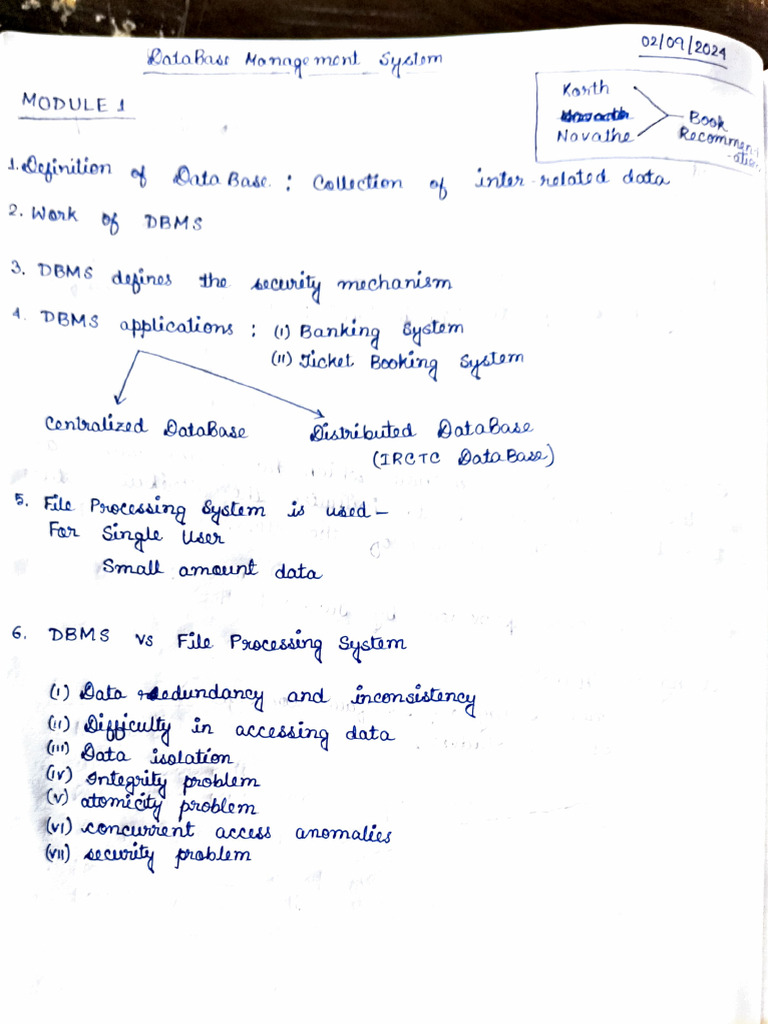 02/09/2024
DataBase Management System
MODULE 1
Korth
Navathe
Book
Recommend
-ation
1. Definition of DataBase : Collection of inter-related data
2. Work of DBMS
3. DBMS defines the security mechanism
4. DBMS applications : (i) Banking System
(ii) Ticket Booking System
Centralized DataBase
Distributed DataBase
(IRCTC DataBase)
5. File Processing System is used –
For Single User
Small amount data
6. DBMS vs File Processing System
(i) Data redundancy and inconsistency
(ii) Difficulty in accessing data
(iii) Data isolation
(iv) Integrity problem
(v) atomicity problem
(vi) concurrent access anomalies
(vii) security problem